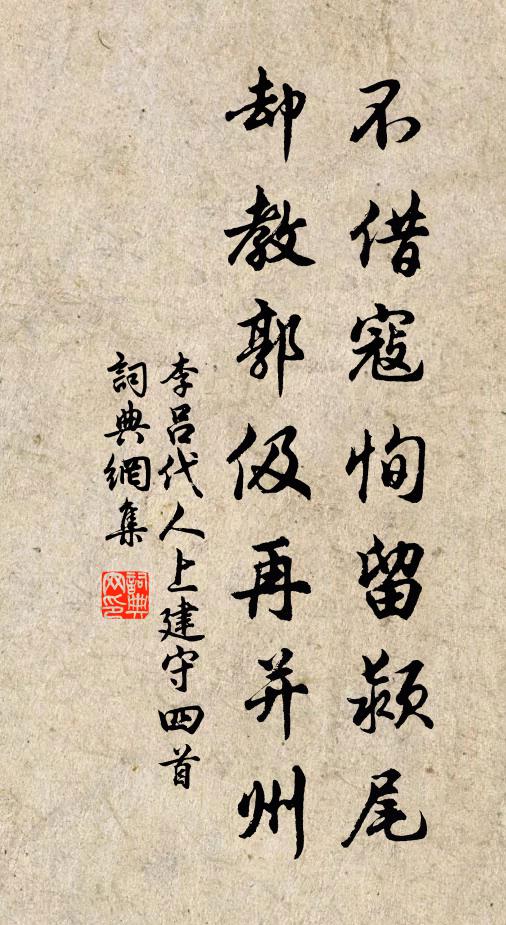 不借寇恂留颍尾
却教郭伋再并州
李吕代人上建守四首
詞典網集
詞典网印